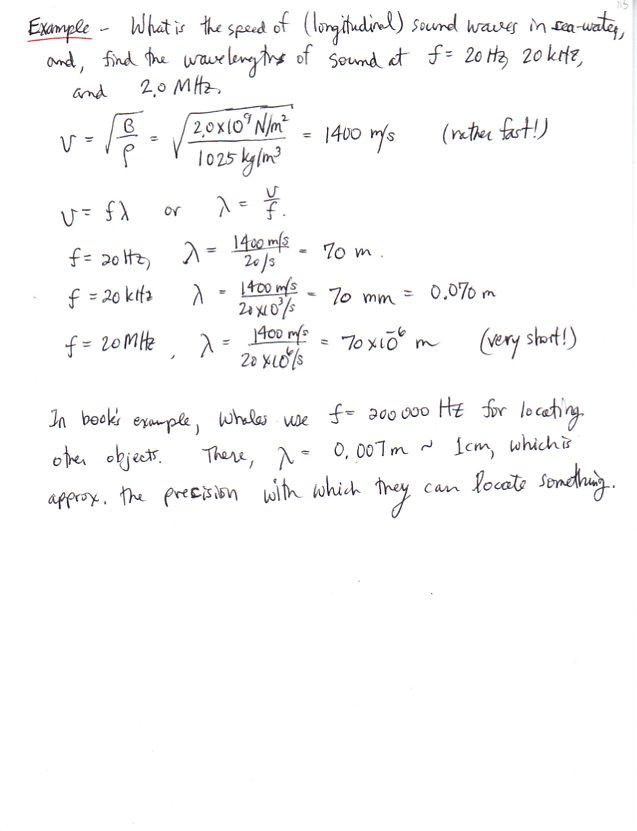 115
Example - What is the speed of (longitudinal) sound waves in sea-water,
and, find the wavelengths of sound at f = 20 Hz, 20 kHz,
and 2.0 MHz.
v = √(B/ρ) = √(2.0×10⁹ N/m² / 1025 kg/m³) = 1400 m/s (rather fast!)
v = fλ or λ = v/f.
f = 20 Hz, λ = 1400 m/s / 20/s = 70 m.
f = 20 kHz λ = 1400 m/s / 20×10³/s = 70 mm = 0.070 m
f = 20 MHz, λ = 1400 m/s / 20×10⁶/s = 70×10⁻⁶ m (very short!)
In book's example, whales use f = 200 000 Hz for locating
other objects. There, λ = 0.007 m ~ 1 cm, which is
approx. the precision with which they can locate something.